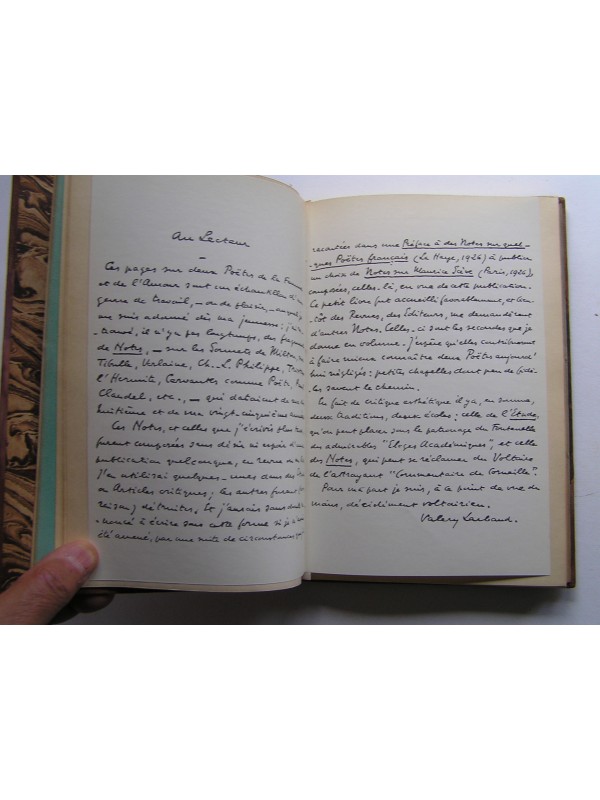 Au Lecteur
—
Ces pages sur deux Poëtes de la
et de l'Amour sont un échantillon
genre de travail, — ou de plaisir, — auquel
me suis adonné dès ma jeunesse :
il n'y a pas longtemps,
de Notes, — sur les Sonnets de Milton,
Tibulle, Verlaine, Ch.-L. Philippe,
l'Hermite, Cervantes comme Poëte,
Claudel, etc., — qui dataient de ma
huitième et de ma vingt-cinquième
Ces Notes, et celles que j'écrivis plus
furent composées sans désir ni espoir
publication quelconque, en revue ou
J'en utilisai quelques-unes dans des
ou Articles critiques; les autres furent
détruites, et j'aurais sans doute
-noncé à écrire sous cette forme si je
été amené, par une suite de circonstances
racontées dans une Préface à des Notes sur quel-
-ques Poëtes français (La Haye, 1926) à publier
un choix de Notes sur Maurice Scève (Paris, 1926),
composées, celles-là, en vue de cette publication.
Ce petit livre fut accueilli favorablement, et bien-
-tôt des Revues, des Éditeurs, me demandèrent
d'autres Notes. Celles-ci sont les secondes que je
donne en volume. J'espère qu'elles contribueront
à faire mieux connaître deux Poëtes aujourd'
hui négligés : petites chapelles dont peu de fidè-
-les savent le chemin.
En fait de critique esthétique il y a, en somme,
deux traditions, deux écoles : celle de l'Étude,
qu'on peut placer sous le patronage du Fontenelle
des admirables "Eloges Académiques", et celle
des Notes, qui peut se réclamer du Voltaire
de l'attrayant "Commentaire de Corneille".
Pour ma part je suis, à ce point de vue du
moins, décidément voltairien.
Valery Larbaud.